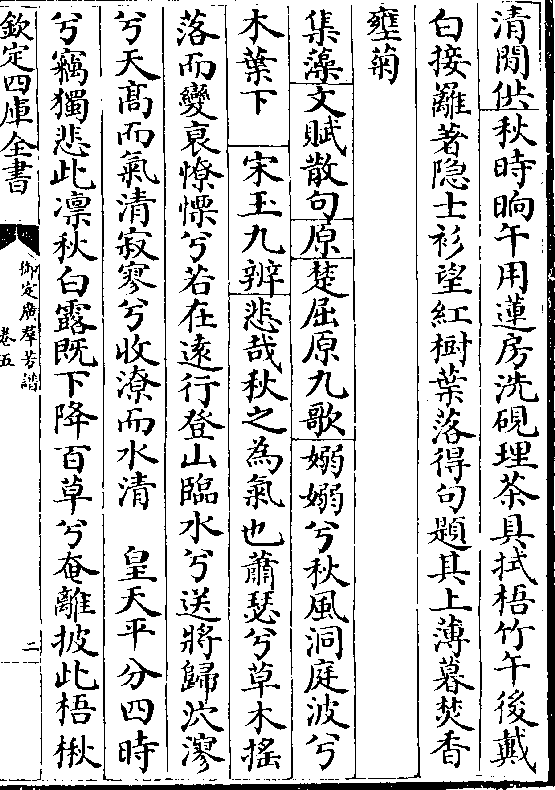 清閒供秋時晌午用蓮房洗硯理茶具拭梧竹午後戴
白接䍦著隐士衫望紅樹葉落得句題其上薄暮焚香
壅菊
集藻文賦散句原楚屈原九歌嫋嫋兮秋風洞庭波兮
木葉下　宋玉九辨悲哉秋之為氣也蕭瑟兮草木搖
落而變衰憭慄兮若在逺行登山臨水兮送將歸泬漻
兮天髙而氣清寂寥兮收潦而水清　皇天平分四時
兮竊獨悲此凛秋白露既下降百草兮奄離披此梧楸
欽定四庫全書
御定廣群芳譜
卷五
二